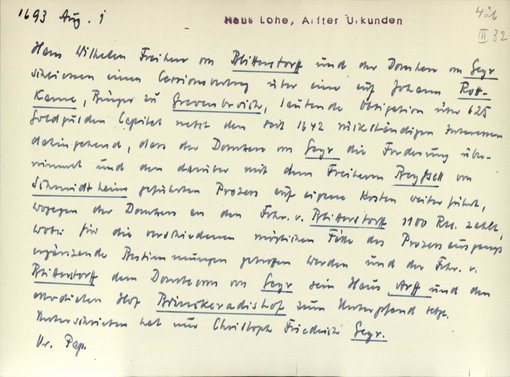 1693 Aug. 1
Haus Lohe, Arffer Urkunden
III 32
Hans Wilhelm Freiherr von Blittersdorff und der Domherr von Geyr
schliessen einen Cessionsvertrag über eine auf Johann Rott-
Kanne, Bürger zu Grevenbroich, lautende Obligation über 625
Goldgulden Capital nebst den seit 1642 rückständigen Interessen
dahingehend, dass der Domherr von Geyr die Forderung über-
nimmt und den darüber mit dem Freiherrn von
Schmidtheim geführten Prozess auf eigene Kosten weiter führt,
wogegen der Domherr an den Frhr. v. Blittersdorff 1100 Rtl. zahlt,
wobei für die verschiedenen möglichen Fälle des Prozessausgangs
ergänzende Bestimmungen getroffen werden und der Frhr. v.
Blittersdorff dem Domherrn von Geyr sein Haus Arff und den
Hof zum Unterpfand setzt.
Unterschrieben hat nur Christoph Friedrich Geyr.
Or. Pap.